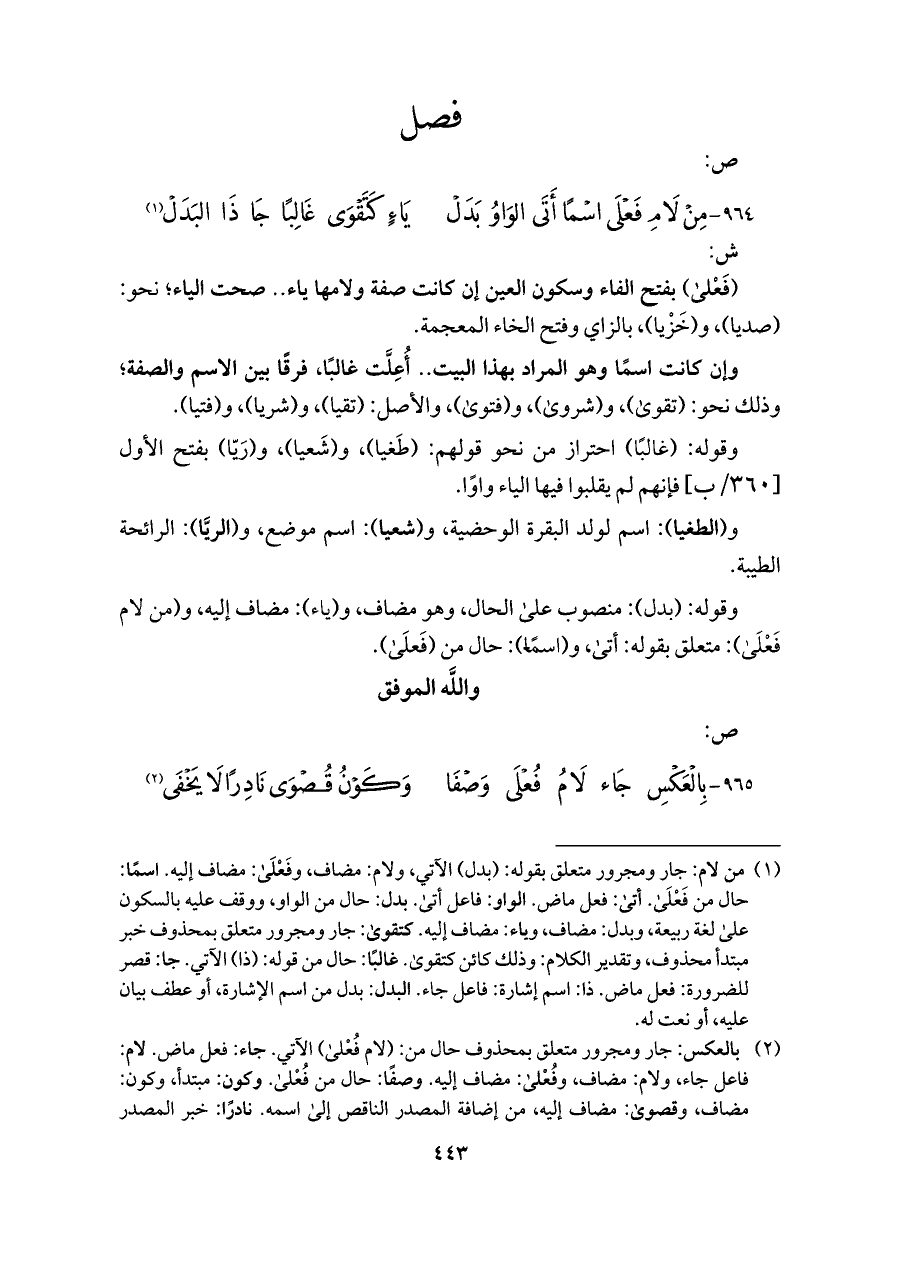 فصل
ص:
٩٦٤-مِنْ لَامِ فَعْلَى اسْمًا أَتَى الوَاوُ بَدَلْ يَاءٍ كَتَقْوَى غَالِبًا جَا ذَا البَدَلْ(١)
ش:
(فَعْلىٰ) بفتح الفاء وسكون العين إن كانت صفة ولامها ياء.. صحت الياء؛ نحو:
(صديا)، و(خَزْيا)، بالزاي وفتح الخاء المعجمة.
وإن كانت اسمًا وهو المراد بهذا البيت.. أُعِلَّت غالبًا، فرقًا بين الاسم والصفة؛
وذلك نحو: (تقوىٰ)، و(شروىٰ)، و(فتوىٰ)، والأصل: (تقيا)، و(شريا)، و(فتيا).
وقوله: (غالبًا) احتراز من نحو قولهم: (طَغيا)، و(شَعيا)، و(رَيّا) بفتح الأول
[٣٦٠/ ب] فإنهم لم يقلبوا فيها الياء واوًا.
و(الطغيا): اسم لولد البقرة الوحضية، و(شعيا): اسم موضع، و(الريَّا): الرائحة
الطيبة.
وقوله: (بدل): منصوب علىٰ الحال، وهو مضاف، و(ياء): مضاف إليه، و(من لام
فَعْلَىٰ): متعلق بقوله: أتىٰ، و(اسمًا): حال من (فَعلَىٰ).
واللَّه الموفق
ص:
٩٦٥-بِالْعَكْسِ جَاء لَامُ فُعْلَى وَصْفَا وَكَوْنُ قُصْوَى نَادِرًا لَا يَخْفَى(٢)
(١) من لام: جار ومجرور متعلق بقوله: (بدل) الآتي، ولام: مضاف، وفَعْلَىٰ: مضاف إليه. اسمًا:
حال من فَعْلَىٰ. أتىٰ: فعل ماض. الواو: فاعل أتىٰ. بدل: حال من الواو، ووقف عليه بالسكون
علىٰ لغة ربيعة، وبدل: مضاف، وياء: مضاف إليه. كتقوىٰ: جار ومجرور متعلق بمحذوف خبر
مبتدأ محذوف، وتقدير الكلام: وذلك كائن كتقوىٰ. غالبًا: حال من قوله: (ذا) الآتي. جا: قصر
للضرورة: فعل ماض. ذا: اسم إشارة: فاعل جاء. البدل: بدل من اسم الإشارة، أو عطف بيان
عليه، أو نعت له.
(٢) بالعكس: جار ومجرور متعلق بمحذوف حال من: (لام فُعْلىٰ) الآتي. جاء: فعل ماض. لام:
فاعل جاء، ولام: مضاف، وفُعْلىٰ: مضاف إليه. وصفًا: حال من فُعْلىٰ. وكون: مبتدأ، وكون:
مضاف، وقصوىٰ: مضاف إليه، من إضافة المصدر الناقص إلىٰ اسمه. نادرًا: خبر المصدر
٤٤٣